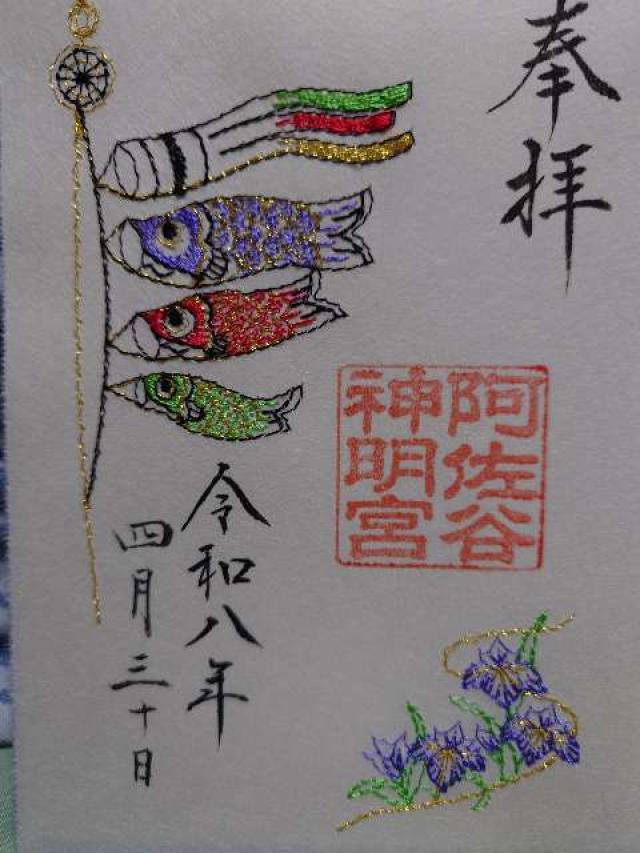 奉拝
阿佐谷
神明宮
令和八年
四月三十日